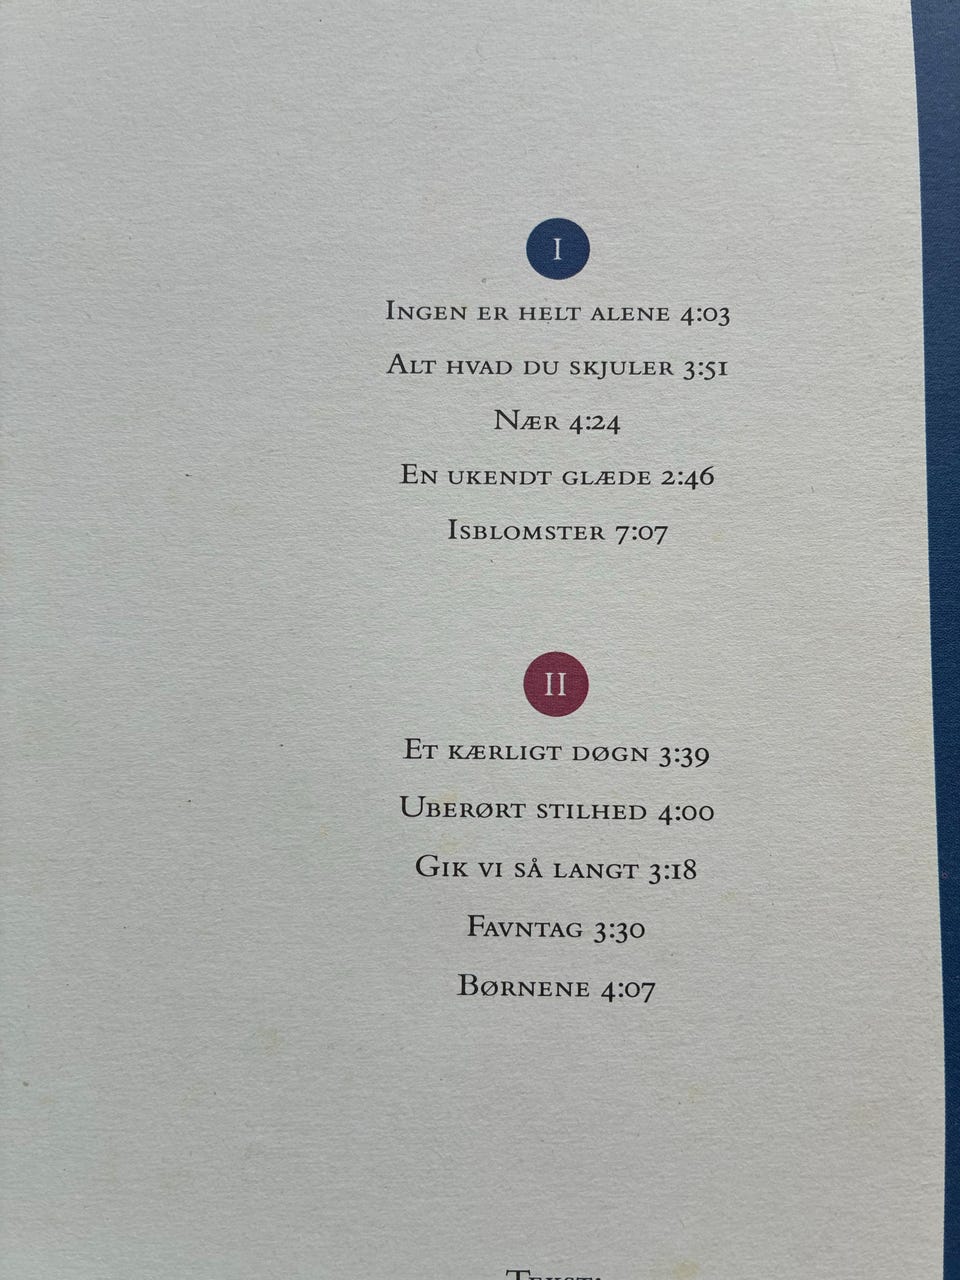 I
Ingen er helt alene 4:03
Alt hvad du skjuler 3:51
Nær 4:24
En ukendt glæde 2:46
Isblomster 7:07
II
Et kærligt døgn 3:39
Uberørt stilhed 4:00
Gik vi så langt 3:18
Favntag 3:30
Børnene 4:07
Tekst: